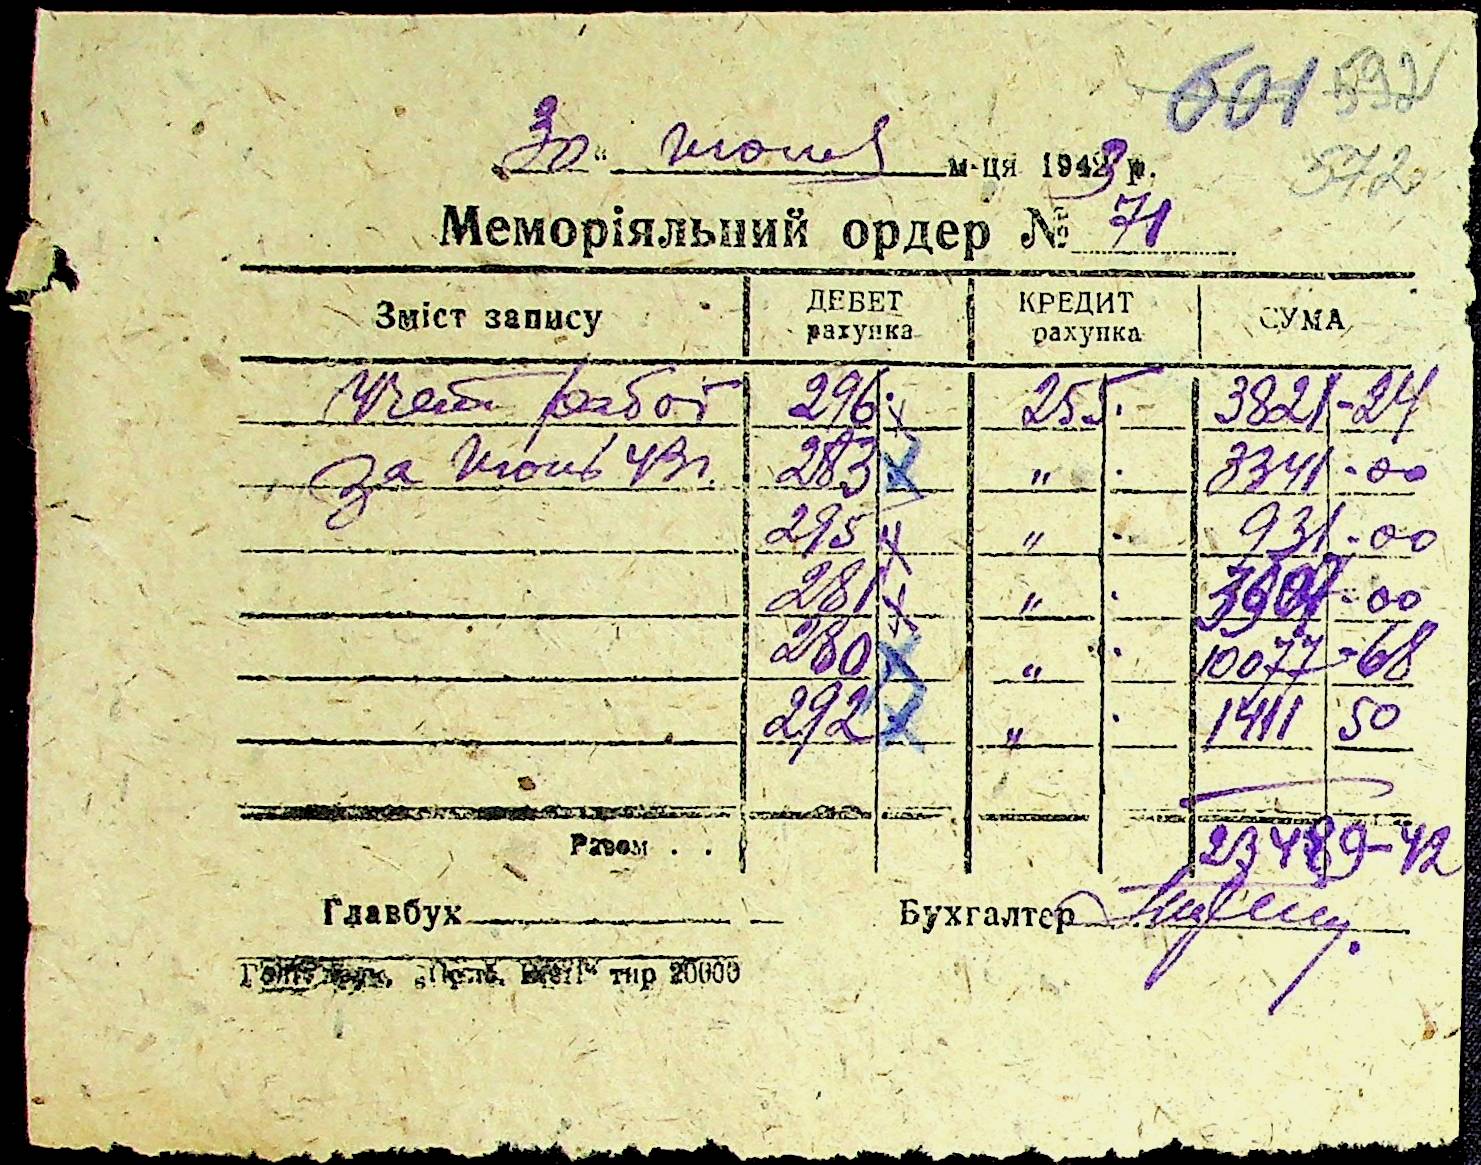 601 592
572
„30“ июня м-ця 1943 р.
Меморіяльний ордер № 71
Зміст запису ДЕБЕТ рахунка КРЕДИТ рахунка СУМА
Учет работ 296 255 3821-24
за июнь 43г. 283 " 3341-00
295 " 931-00
281 " 3907-00
280 " 10077-68
292 " 1411 50
Разом . . 23489-42
Главбух Бухгалтер
тир 20000